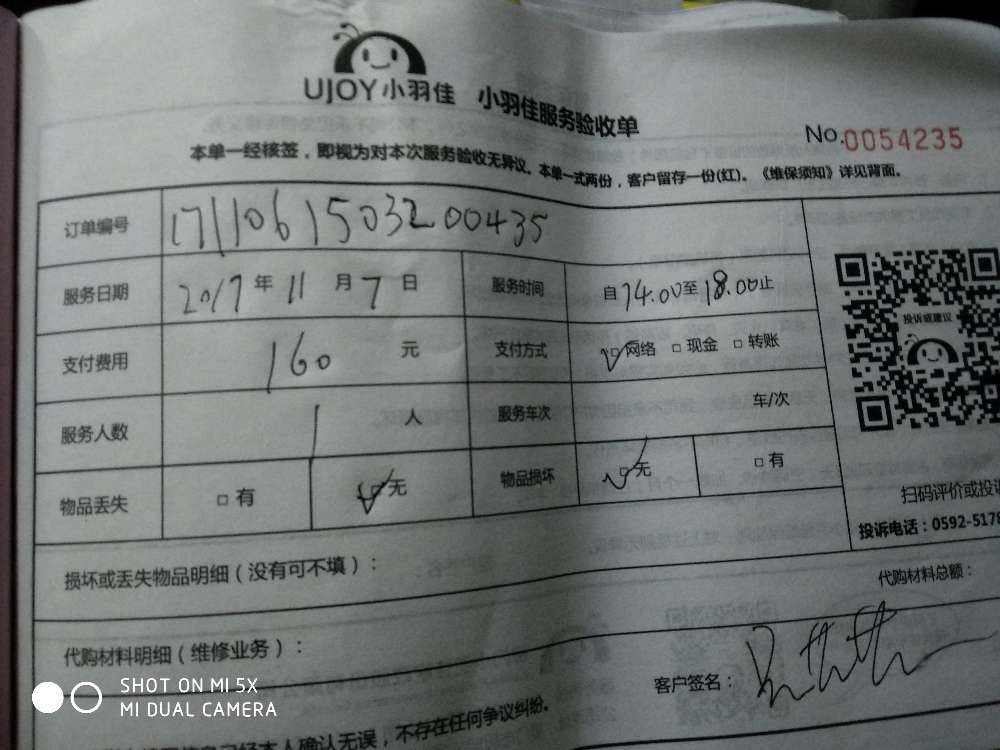 UJOY小羽佳 小羽佳服务验收单
No.0054235
本单一经核签，即视为对本次服务验收无异议。本单一式两份，客户留存一份(红)。《维保须知》详见背面。
订单编号 171106150320 0435
服务日期 2017年11月7日 服务时间 自14.00至18.00止
支付费用 160元 支付方式 ☑网络 □现金 □转账
服务人数 1人 服务车次 车/次
物品丢失 □有 ☑无 物品损坏 ☑无 □有
投诉或建议
扫码评价或投诉
投诉电话：0592-5178
损坏或丢失物品明细（没有可不填）：
代购材料总额：
代购材料明细（维修业务）：
客户签名：
本人确认无误，不存在任何争议纠纷。
SHOT ON MI 5X
MI DUAL CAMERA